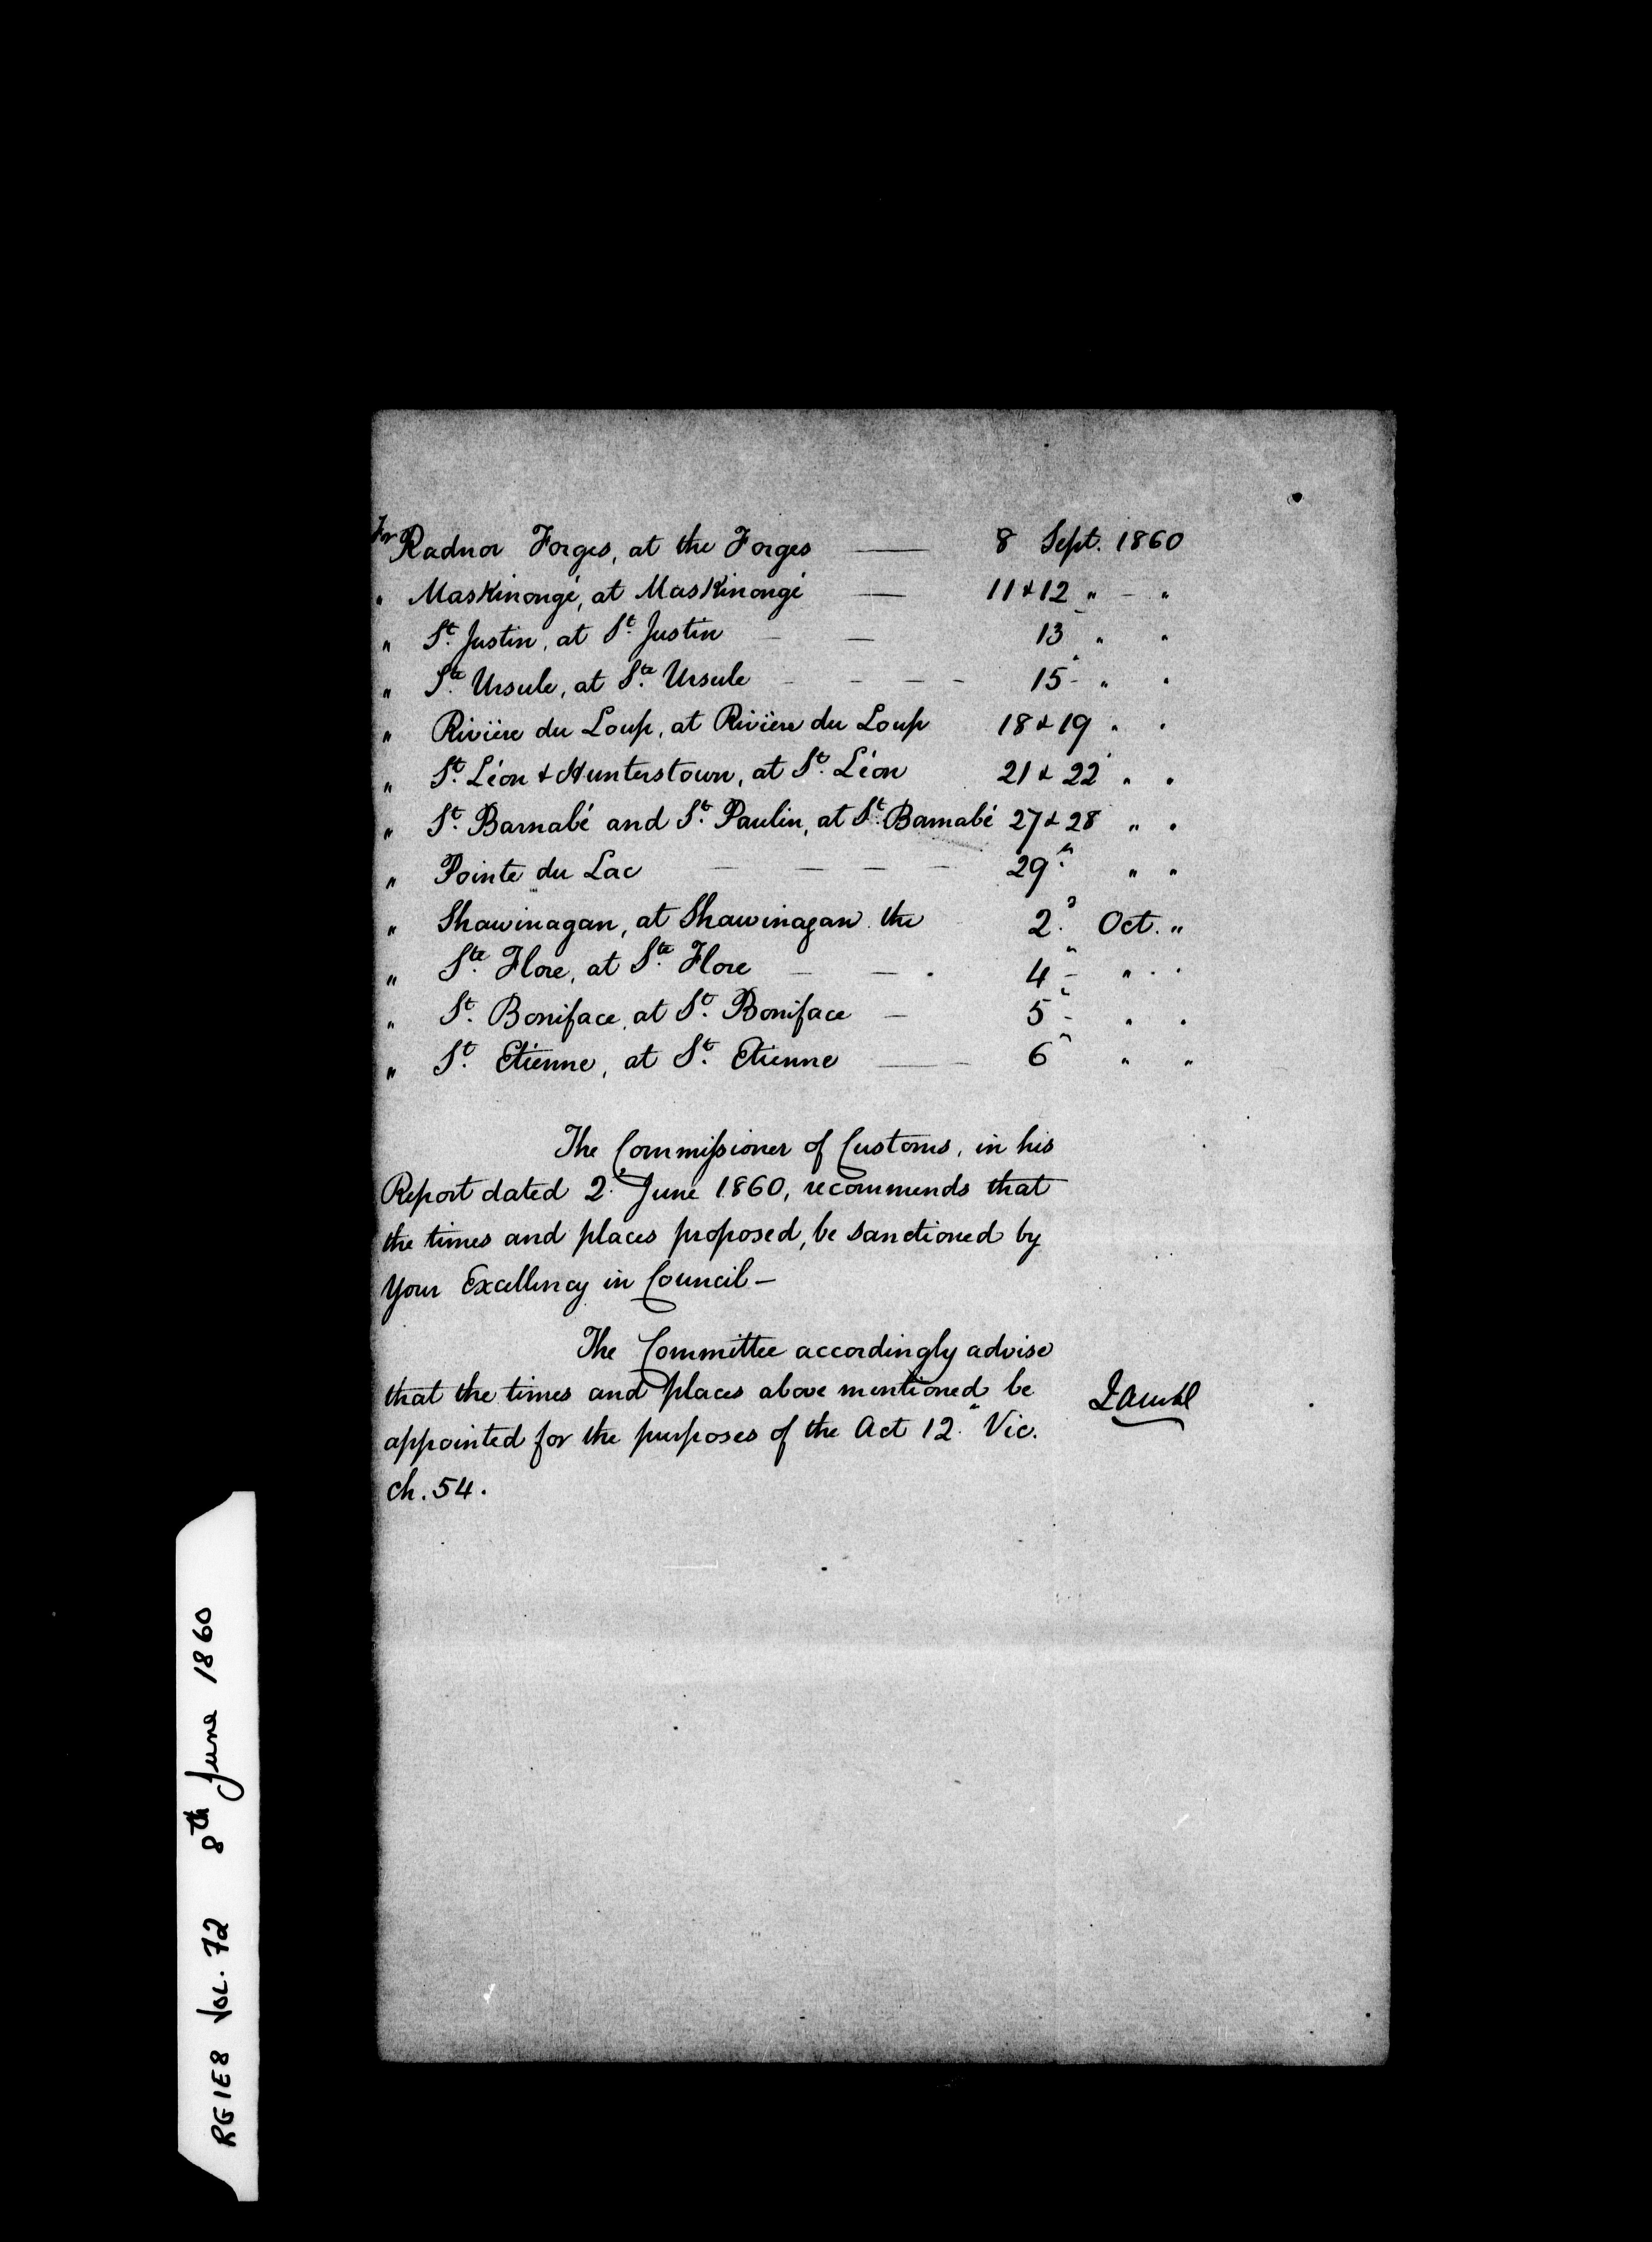 For Radnor Forges, at the Forges — 8 Sept. 1860
" Maskinongé, at Maskinongé — 11 & 12 " - "
" St. Justin, at St. Justin - — 13 " "
" Ste. Ursule, at Ste. Ursule - - - - 15 - " "
" Rivière du Loup, at Rivière du Loup 18 & 19 " "
" St. Léon & Hunterstown, at St. Léon 21 & 22 " "
" St. Barnabé and St. Paulin, at St. Barnabé 27 & 28 " "
" Pointe du Lac — — — — 29 " " "
" Shawinagan, at Shawinagan the 2d. Oct. "
" Ste. Flore, at Ste. Flore — — . 4 " " "
" St. Boniface, at St. Boniface — 5 " " "
" St. Etienne, at St. Etienne — 6 " " "
The Commissioner of Customs, in his
Report dated 2. June 1860, recommends that
the times and places proposed, be sanctioned by
Your Excellency in Council —
The Committee accordingly advise
that the times and places above mentioned be
appointed for the purposes of the Act 12. Vic.
ch. 54.
RG1E8 VOL. 72 8th June 1860